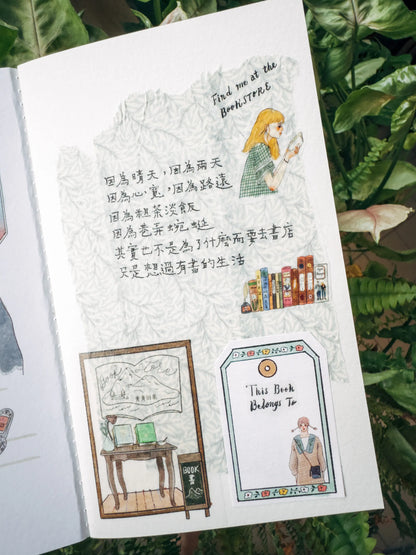 Find me at the
BOOKSTORE
因為晴天，因為雨天
因為心寬，因為路遠
因為粗茶淡飯
因為巷弄蜿蜒
其實也不是為了什麼而要去書店
只是想過有書的生活
This Book
Belongs To
BOOK